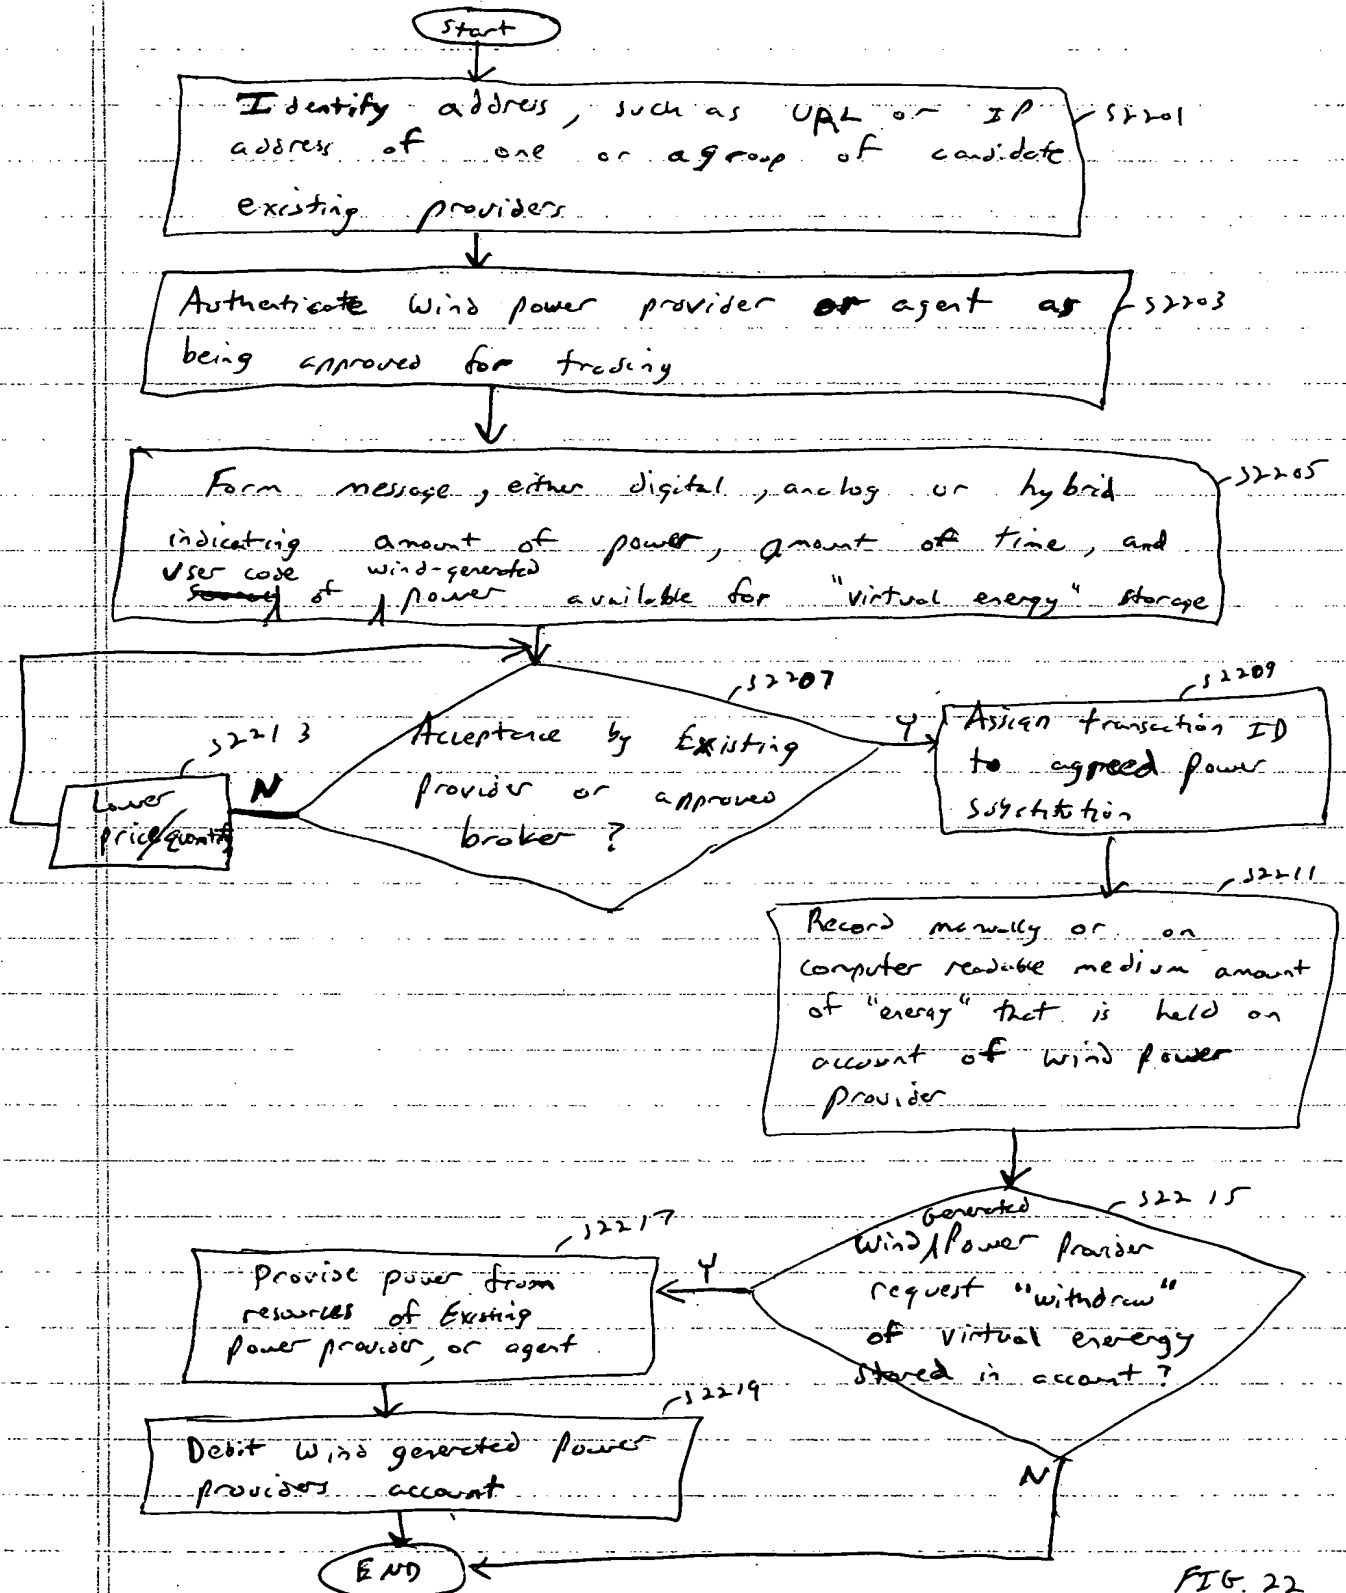 Start
Identify address, such as URL or IP
address of one or a group of candidate
existing providers
S2201
Authenticate Wind power provider or agent as
being approved for trading
S2203
Form message, either digital, analog or hybrid
indicating amount of power, amount of time, and
user code of wind-generated power available for "virtual energy" storage
S2205
S2207
Acceptance by Existing
provider or approved
broker ?
Y
N
S2213
Lower
price/quantity
S2209
Assign transaction ID
to agreed power
substitution
S2211
Record manually or on
computer readable medium amount
of "energy" that is held on
account of wind power
provider
S2215
Wind generated Power Provider
request "withdraw"
of virtual enerergy
stored in account ?
Y
N
S2217
Provide power from
resources of Existing
power provider, or agent
S2219
Debit Wind generated power
providers account
END
FIG. 22